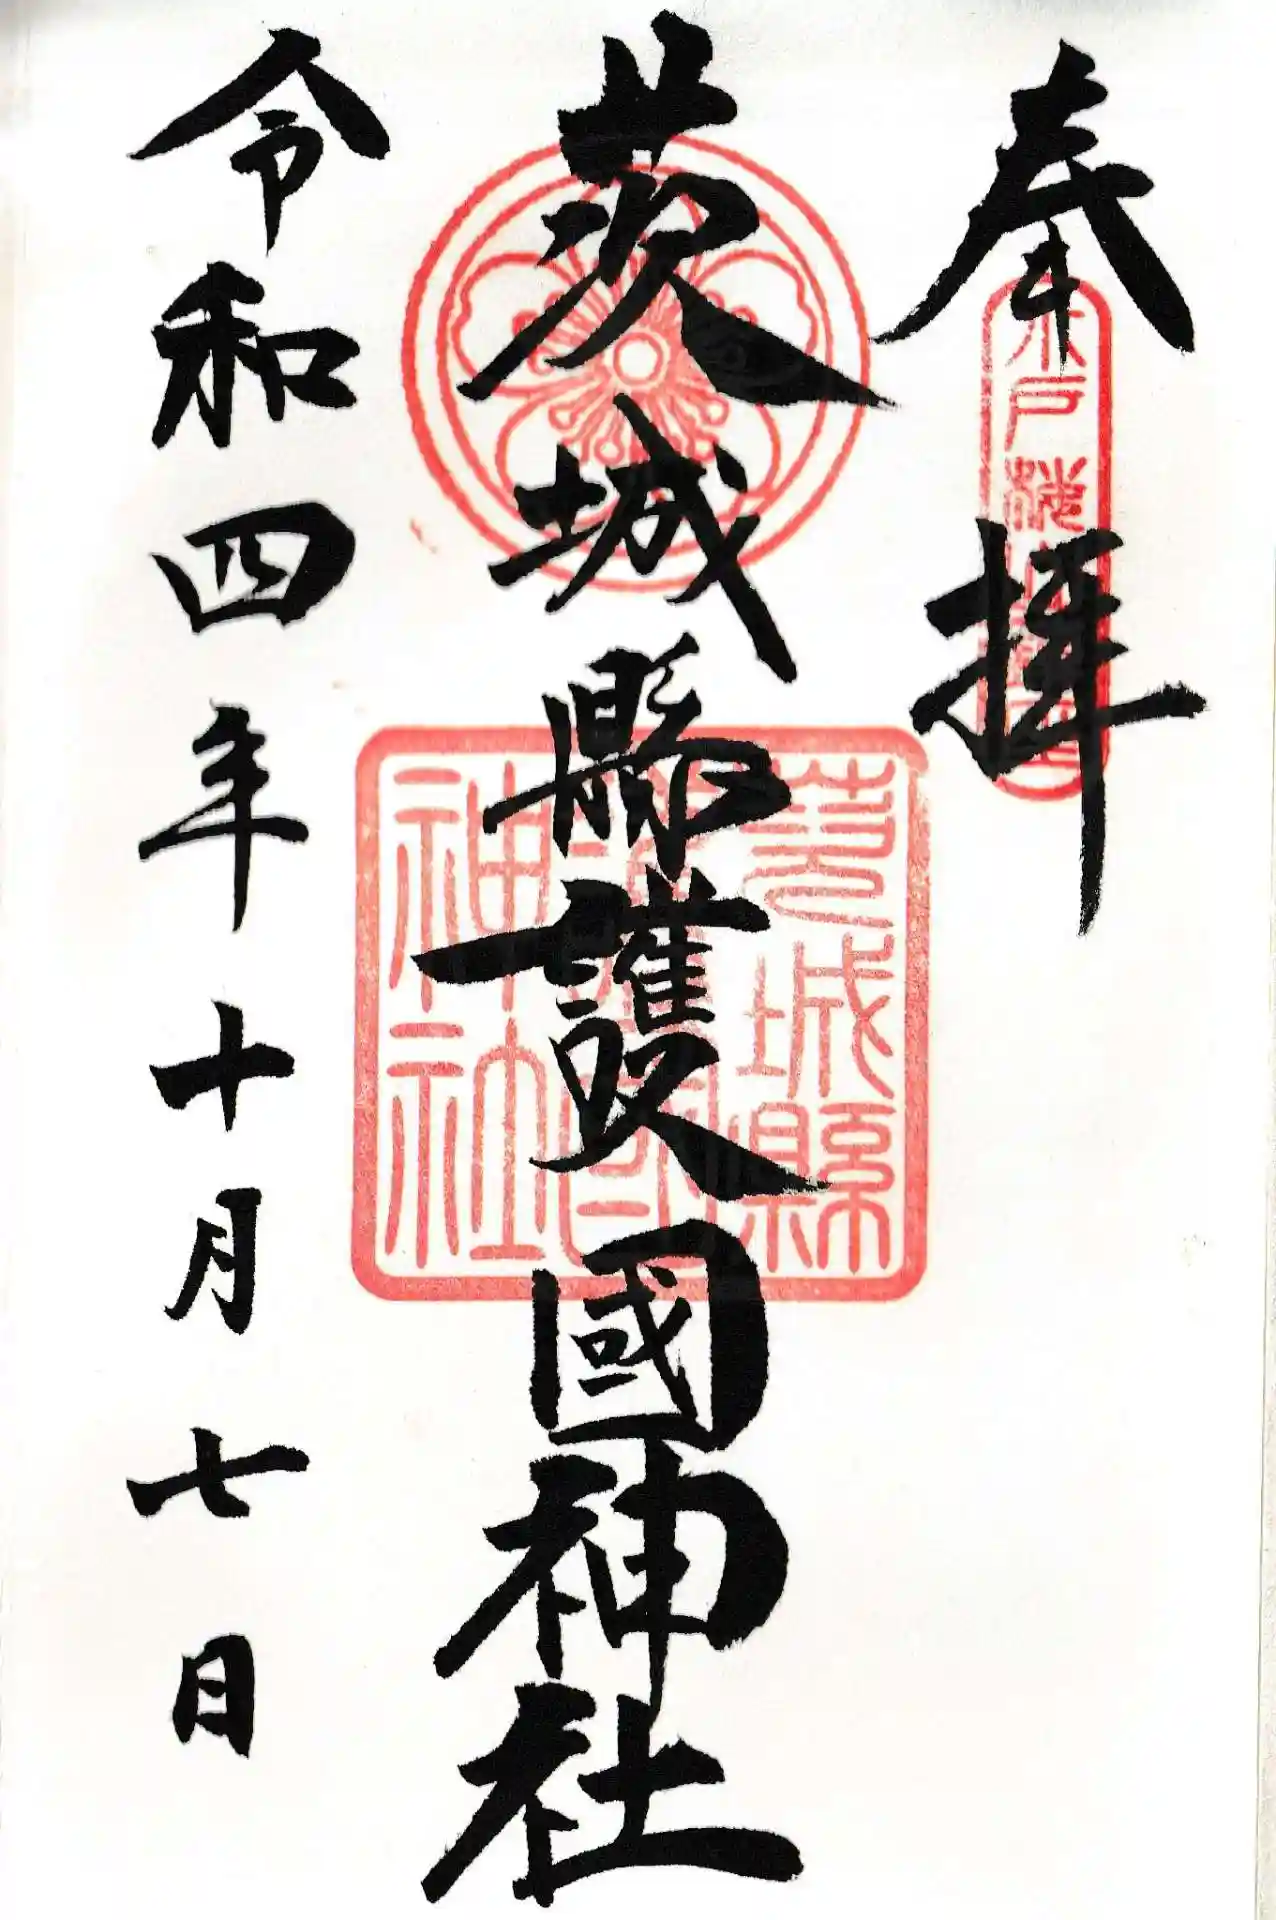 奉拝
茨城縣護國神社
令和四年十月七日
茨城縣
護國
神社